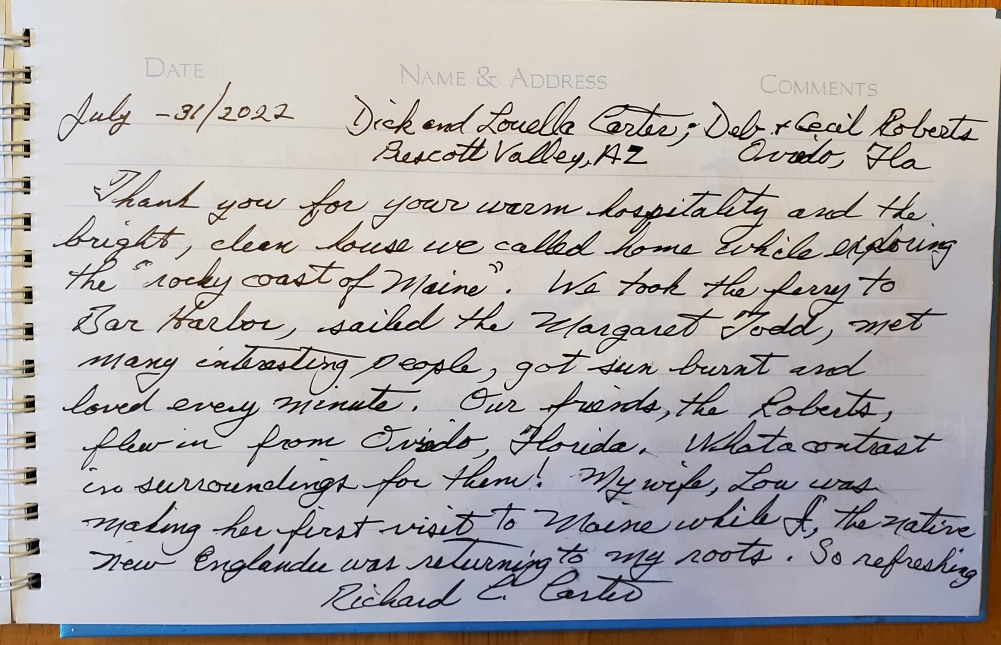 DATE NAME & ADDRESS COMMENTS
July -31/2022 Dick and Louella Carter; Deb + Cecil Roberts
Prescott Valley, AZ Oviedo, Fla
Thank you for your warm hospitality and the
bright, clean house we called home while exploring
the "rocky coast of Maine". We took the ferry to
Bar Harbor, sailed the Margaret Todd, met
many interesting people, got sun burnt and
loved every minute. Our friends, the Roberts,
flew in from Oviedo, Florida. What a contrast
in surroundings for them! My wife, Lou was
making her first visit to Maine while I, the native
New Englander was returning to my roots. So refreshing
Richard C. Carter